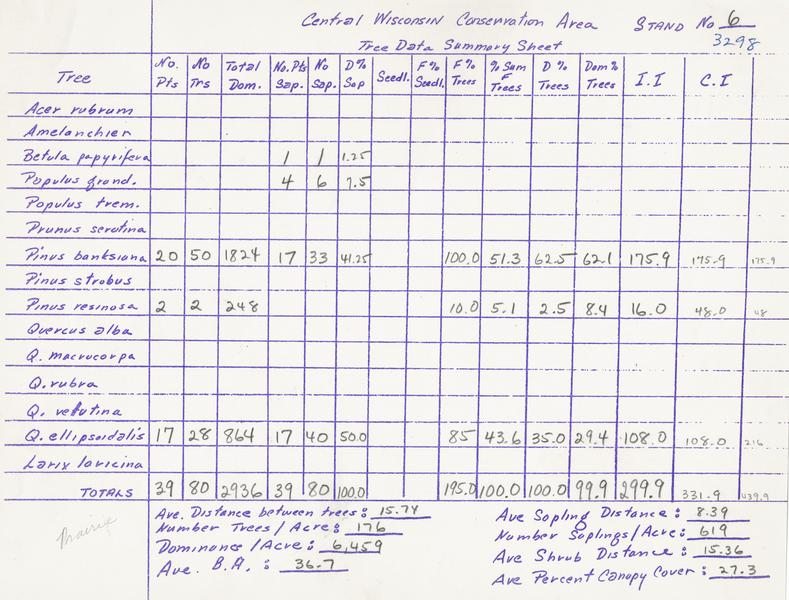 Central Wisconsin Conservation Area Stand No 6
3298
Tree Data Summary Sheet
Tree No. Pts No Trs Total Dom. No. Pts Sap. No Sap. D% Sap Seedl. F% Seedl. F% Trees % Sum F Trees D% Trees Dom% Trees I.I C.I
Acer rubrum
Amelanchier
Betula papyrifera 1 1 1.25
Populus grand. 4 6 7.5
Populus trem.
Prunus serotina
Pinus banksiana 20 50 1824 17 33 41.25 100.0 51.3 62.5 62.1 175.9 175.9 175.9
Pinus strobus
Pinus resinosa 2 2 248 10.0 5.1 2.5 8.4 16.0 48.0 48
Quercus alba
Q. macrocarpa
Q. rubra
Q. velutina
Q. ellipsoidalis 17 28 864 17 40 50.0 85 43.6 35.0 29.4 108.0 108.0 216
Larix laricina
Totals 39 80 2936 39 80 100.0 195.0 100.0 100.0 99.9 299.9 331.9 439.9
Prairie
Ave. Distance between trees: 15.74
Number Trees/Acre: 176
Dominance/Acre: 6,459
Ave. B.A.: 36.7
Ave Sapling Distance: 8.39
Number Saplings/Acre: 619
Ave Shrub Distance: 15.36
Ave Percent Canopy Cover: 27.3